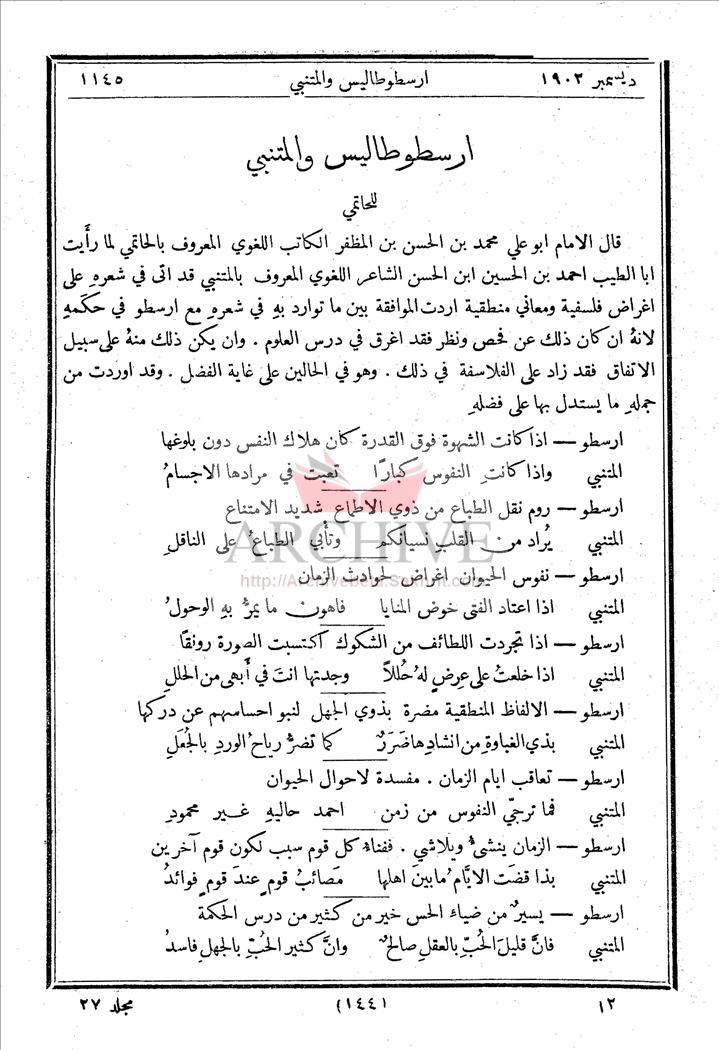 ديسمبر ١٩٠٢ ارسطوطاليس والمتنبي ١١٤٥
ارسطوطاليس والمتنبي
للحاتمي
قال الامام ابو علي محمد بن الحسن بن المظفر الكاتب اللغوي المعروف بالحاتمي لما رأَيت
ابا الطيب احمد بن الحسين ابن الحسن الشاعر اللغوي المعروف بالمتنبي قد اتى في شعرهِ على
اغراض فلسفية ومعاني منطقية اردت الموافقة بين ما توارد بهِ في شعرهِ مع ارسطو في حكمهِ
لانهُ ان كان ذلك عن فحص ونظر فقد اغرق في درس العلوم . وان يكن ذلك منهُ على سبيل
الاتفاق فقد زاد على الفلاسفة في ذلك . وهو في الحالين على غاية الفضل . وقد اوردت من
جملهِ ما يستدل بها على فضلهِ
ارسطو — اذا كانت الشهوة فوق القدرة كان هلاك النفس دون بلوغها
المتنبي واذا كانتِ النفوس كبارًا تعبت في مرادها الاجسامُ
ارسطو — روم نقل الطباع من ذوي الاطماع شديد الامتناع
المتنبي يُراد من القلب نسيانكم وتأبي الطباعُ على الناقلِ
ARCHIVE
ارسطو — نفوس الحيوان اغراض لحوادث الزمان
المتنبي اذا اعتاد الفتى خوض المنايا فاهون ما يمرُّ بهِ الوحولُ
ارسطو — اذا تجردت اللطائف من الشكوك اكتسبت الصورة رونقًا
المتنبي اذا خلعتُ على عِرضٍ لهُ حُللاً وجدتها انتَ في أَبهى من الحللِ
ارسطو — الالفاظ المنطقية مضرة بذوي الجهل لنبو احساسهم عن دركها
المتنبي بذي الغباوةِ من انشادها ضَرَرٌ كما تضرُّ رياحُ الوردِ بالجُعَلِ
ارسطو — تعاقب ايام الزمان . مفسدة لاحوال الحيوان
المتنبي فما ترجّي النفوس من زمن احمد حاليهِ غير محمودِ
ارسطو — الزمان ينشئُ ويلاشي . ففناءُ كل قوم سبب لكون قوم آخرين
المتنبي بذا قضَت الايَّامُ ما بين اهلها مصائبُ قومٍ عند قومٍ فوائدُ
ارسطو — يسيرٌ من ضياء الحس خير من كثير من درس الحكمة
المتنبي فانَّ قليلَ الحُبِّ بالعقلِ صالحٌ وانَّ كثير الحُبِّ بالجهلِ فاسدُ
١٢ (١٤٤) مجلد ٢٧